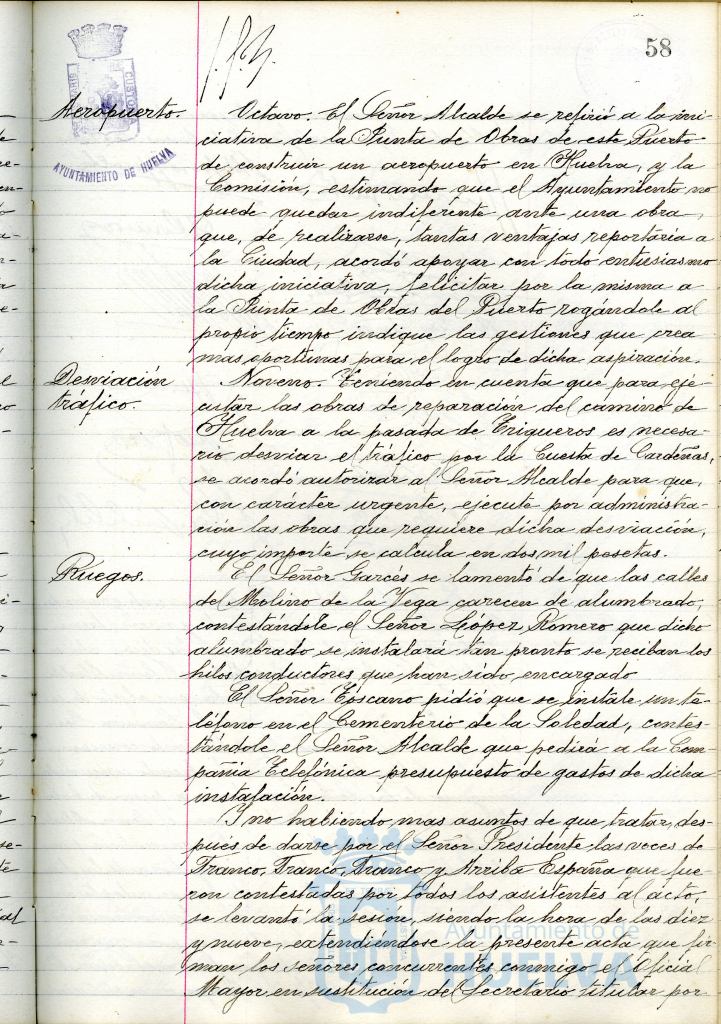 58
AYUNTAMIENTO DE HUELVA
Aeropuerto.
Octavo. El Señor Alcalde se refirió a la ini-
ciativa de la Junta de Obras de este Puerto
de construir un aeropuerto en Huelva, y la
Comisión, estimando que el Ayuntamiento no
puede quedar indiferente ante una obra,
que, de realizarse, tantas ventajas reportaría a
la Ciudad, acordó apoyar con todo entusiasmo
dicha iniciativa, felicitar por la misma a
la Junta de Obras del Puerto rogándole al
propio tiempo indique las gestiones que crea
mas oportunas para el logro de dicha aspiración.
Desviación
tráfico.
Noveno. Teniendo en cuenta que para eje-
cutar las obras de reparación del camino de
Huelva a la pasada de Trigueros es necesa-
rio desviar el tráfico por la Cuesta de Cardeñas,
se acordó autorizar al Señor Alcalde para que,
con carácter urgente, ejecute por administra-
ción las obras que requiere dicha desviación,
cuyo importe se calcula en dos mil pesetas.
Ruegos.
El Señor Garcés se lamentó de que las calles
del Molino de la Vega carecen de alumbrado,
contestándole el Señor López Romero que dicho
alumbrado se instalará tan pronto se reciban los
hilos conductores que han sido encargado
El Señor Toscano pidió que se instale un te-
léfono en el Cementerio de la Soledad, contes-
tándole el Señor Alcalde que pedirá a la Com-
pañia Telefónica presupuesto de gastos de dicha
instalación.
Y no habiendo mas asuntos de que tratar, des-
pués de darse por el Señor Presidente las voces de
Franco, Franco, Franco y Arriba España que fue-
ron contestadas por todos los asistentes al acto,
se levantó la sesion, siendo la hora de las diez
y nueve, extendiéndose la presente acta que fir-
man los señores concurrentes conmigo el Oficial
Mayor en sustitución del Secretario titular por
Ayuntamiento de
HUELVA